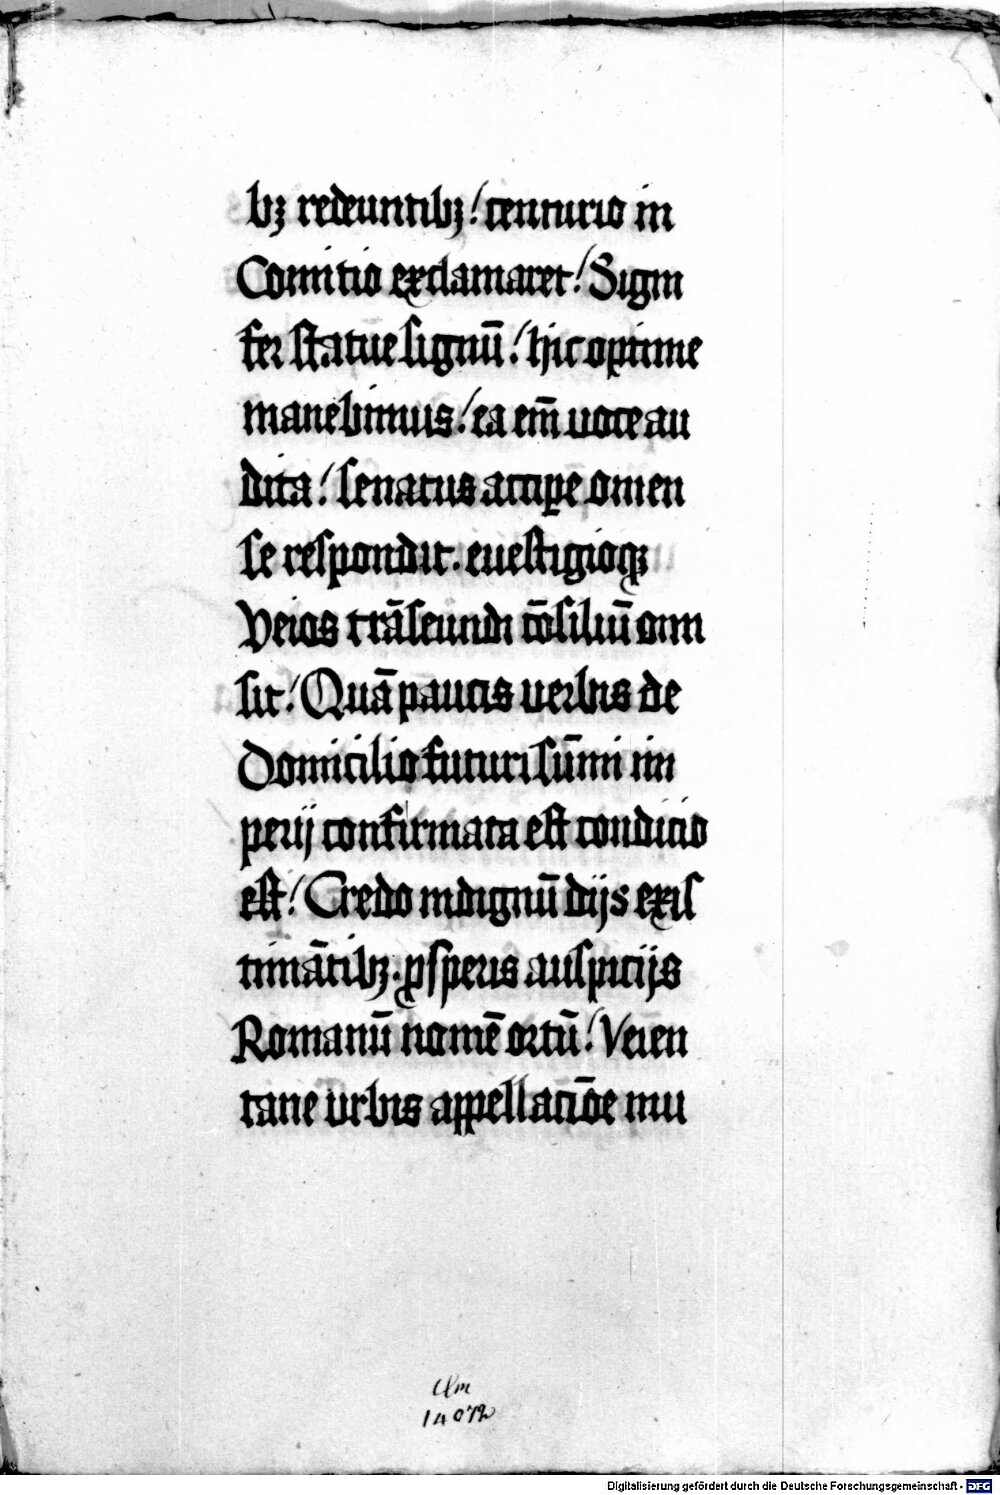 bꝫ redeuntibꝫ / centurio in
Comitio exclamaret / Signi
fer statue signū / hic optime
manebimus / ea em̄ uoce au
dita / senatus accipe omen
se respondit. euestigioqꝫ
Veios trāseundi cōsiliū omi
sit / Quā paucis uerbis de
Domicilio futuri sūmi im
perij confirmata est condicio
est / Credo indignū dijs exis
timātibꝫ. ꝓsperis auspicijs
Romanū nomē ortū / Veien
tane urbis appellacōe mu
Clm
14072
Digitalisierung gefördert durch die Deutsche Forschungsgemeinschaft - DFG